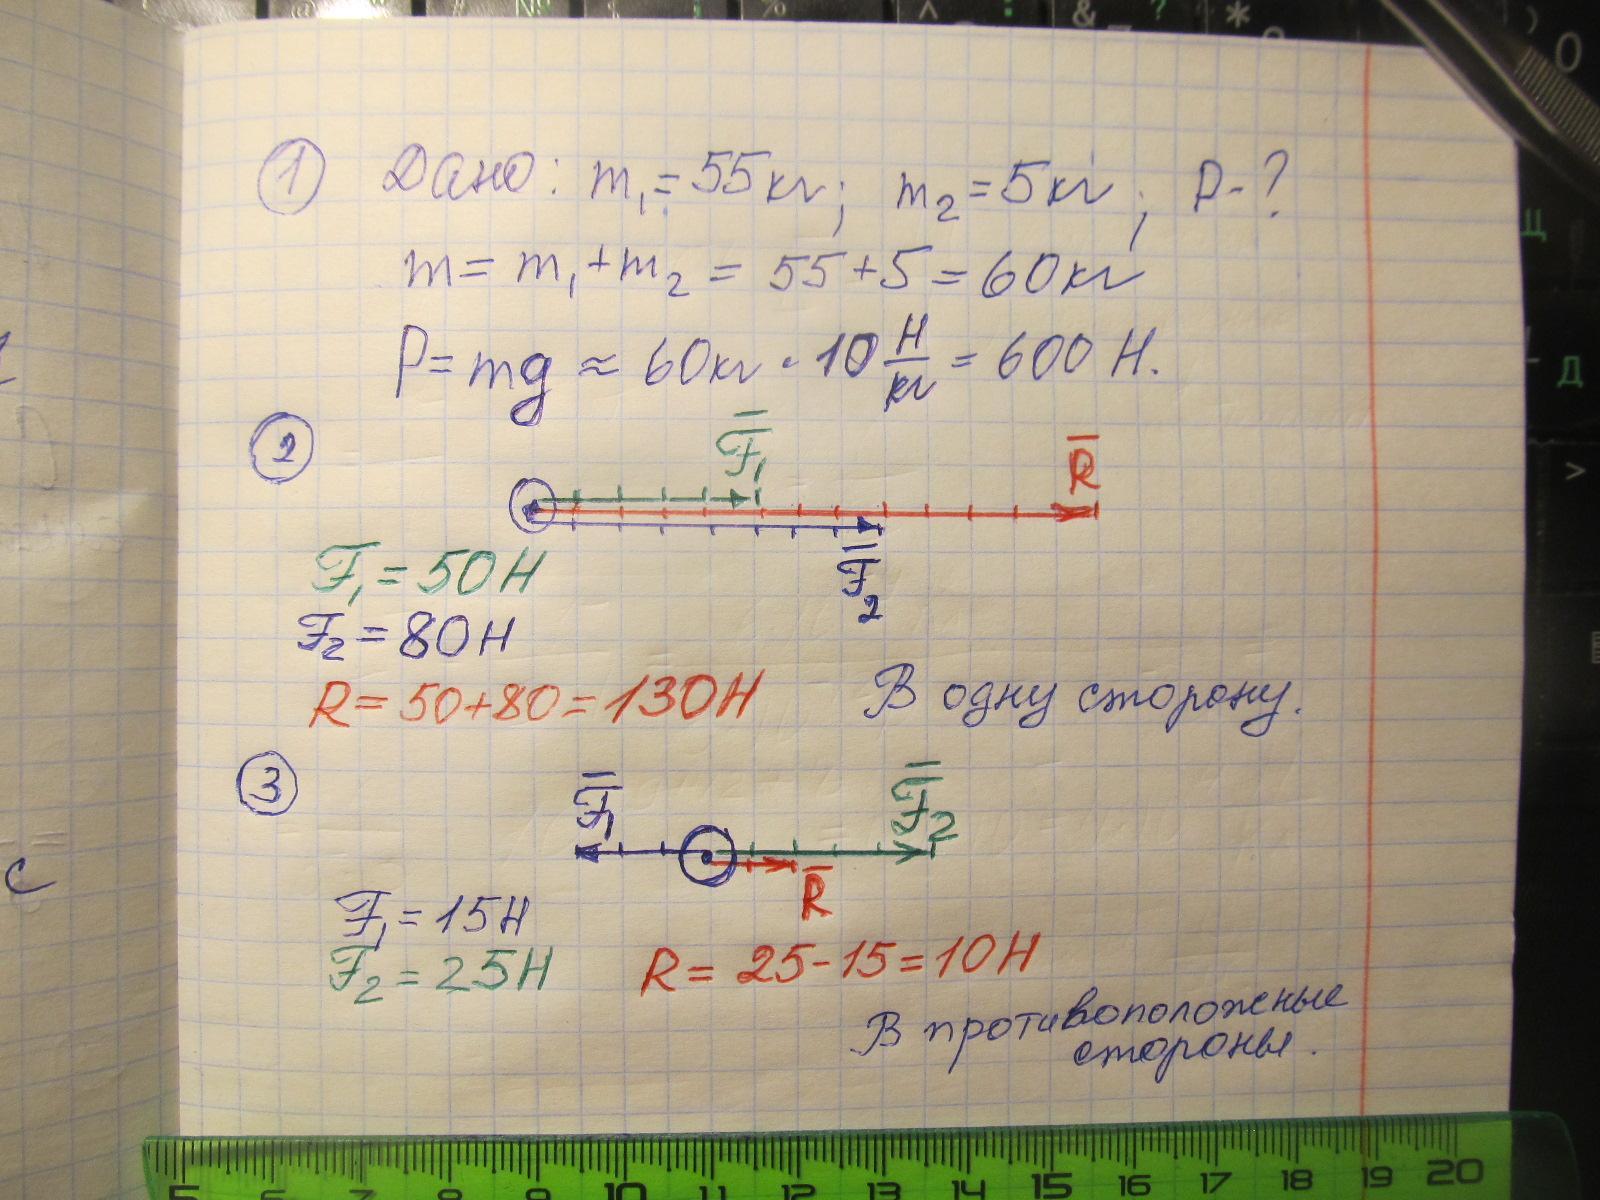 ① Дано: m₁=55кг; m₂=5кг; P-?
m= m₁+m₂ = 55+5=60кг
P=mg ≈ 60кг·10 Н/кг = 600 Н.
②
F̅₁
R̅
F̅₂
F₁=50Н
F₂=80Н
R=50+80=130Н В одну сторону.
③
F̅₁
F̅₂
R̅
F₁=15Н
F₂=25Н R= 25-15=10Н
В противоположные
стороны.
5 6 7 8 9 10 11 12 13 14 15 16 17 18 19 20